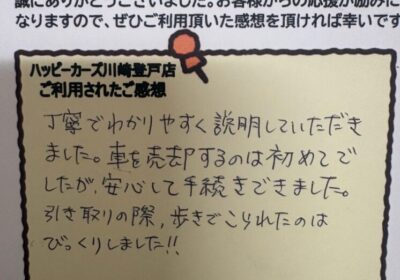 誠にありがとうございました。お客様からの応援が励みに
なりますので、ぜひご利用頂いた感想を頂ければ幸いです
ハッピーカーズ川崎登戸店
ご利用されたご感想
丁寧でわかりやすく説明していただき
ました。車を売却するのは初めてで
したが、安心して手続きできました。
引き取りの際、歩きでこられたのは
びっくりしました!!